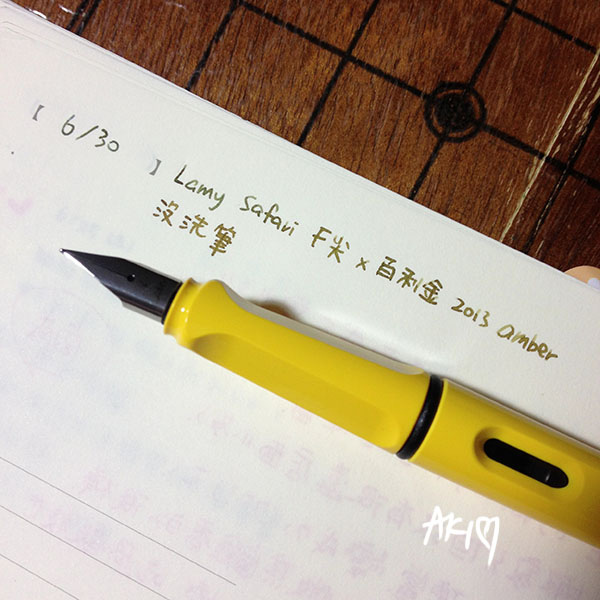 【 6/30 】 Lamy Safari F尖 x 百利金 2013 amber
沒洗筆
AKI♡